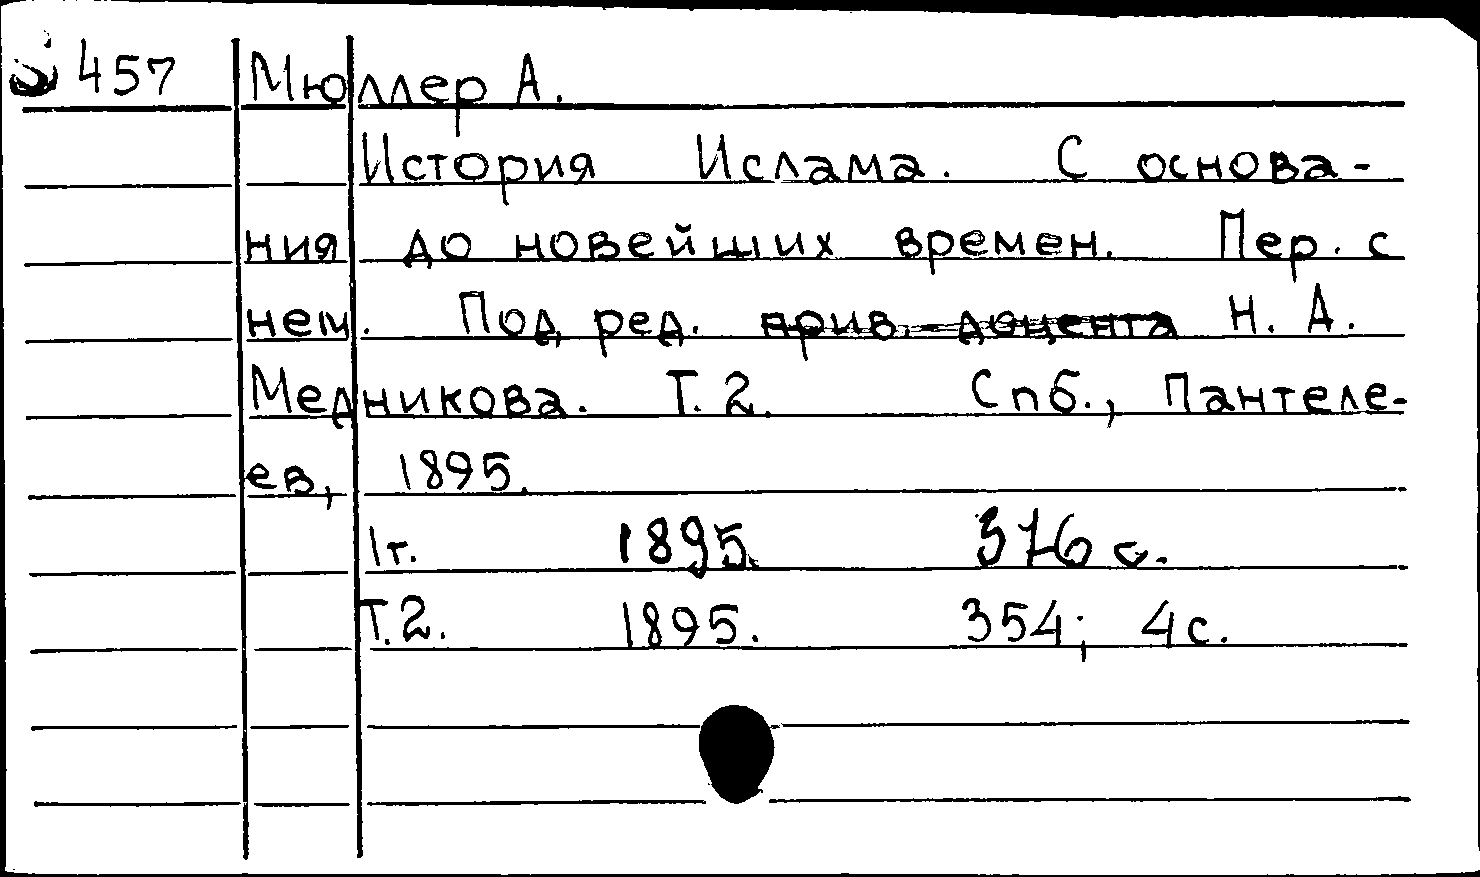 457 Мюллер А.
История Ислама. С основа-
ния до новейших времен. Пер. с
нем. Под ред. прив.-доцента Н. А.
Медникова. Т. 2. Спб., Пантеле-
ев, 1895.
1т. 1895. 376 с.
Т.2. 1895. 354; 4с.